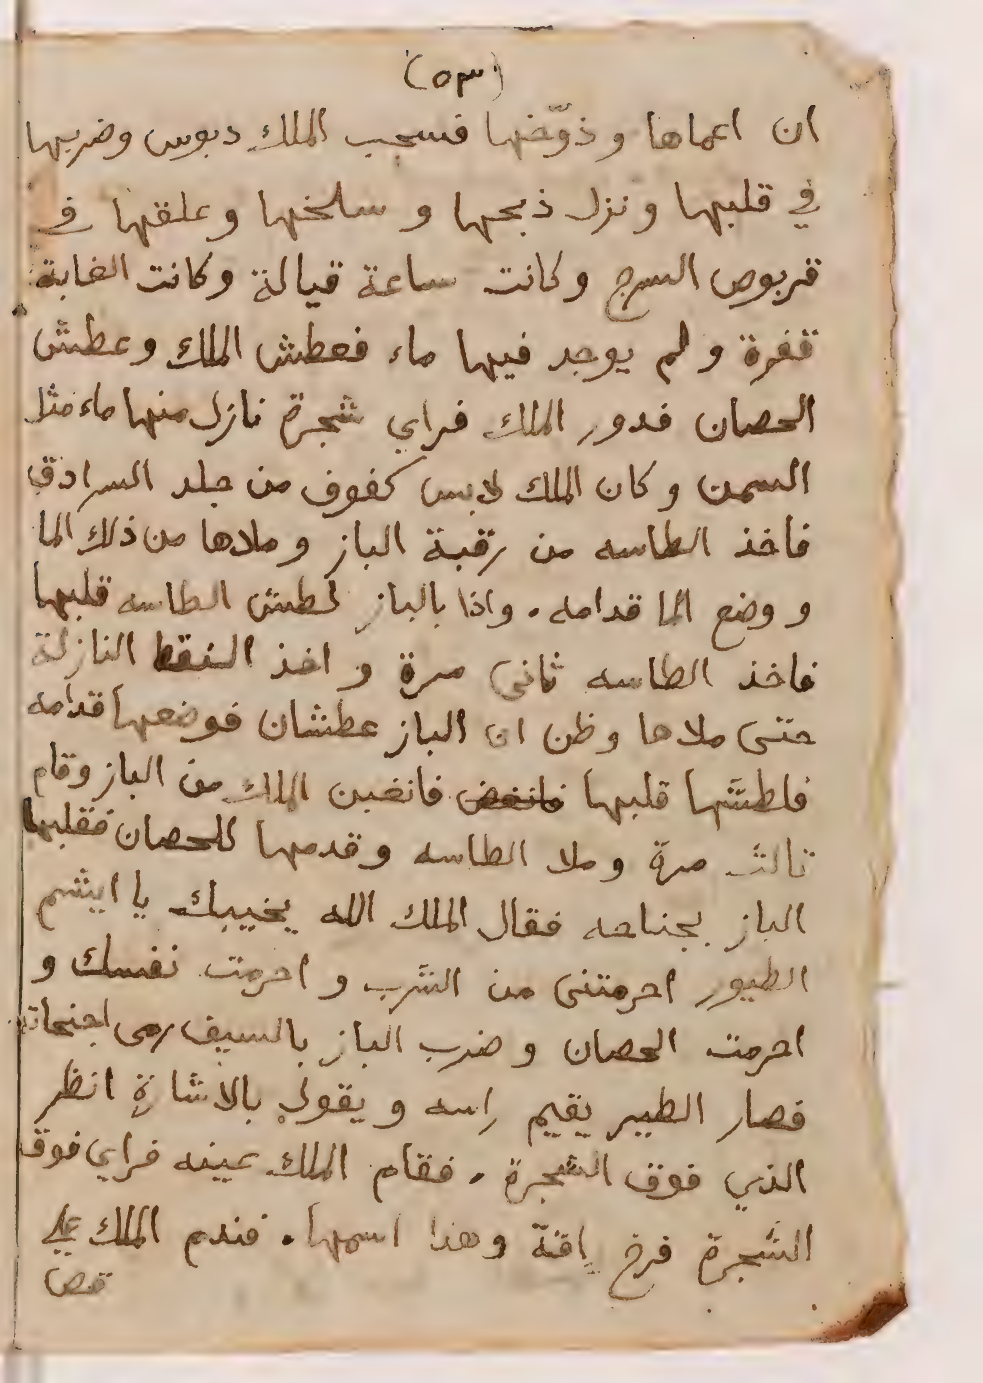 (٥٣)
ان اعماها و ذوّخها فسحب الملك دبوس وضربها
في قلبها و نزل ذبحها و سلخها وعلقها في
قربوص السرج وكانت ساعة قيالة وكانت الغابة
قفرة و لم يوجد فيها ماء فعطش الملك وعطش
الحصان فدور الملك فراي شجرة نازل منها ماء مثل
السمن وكان الملك لابس كفوف من جلد السرادق
فاخذ الطاسه من رقبة الباز و ملاها من ذلك الما
و وضع الما قدامه . واذا بالباز لطش الطاسه قلبها
فاخذ الطاسه ثاني مرة و اخذ النقط النازلة
حتى ملاها وظن ان الباز عطشان فوضعها قدامه
فلطشها قلبها فانغض فانغبن الملك من الباز وقام
تالث مرة و ملا الطاسه وقدمها للحصان فقلبها
الباز بجناحه فقال الملك الله يخيبك يا ايشم
الطيور احرمتنى من الشرب و احرمت نفسك و
احرمت الحصان و ضرب الباز بالسيف رمى اجنحاته
فصار الطير يقيم راسه و يقول بالاشارة انظر
الذي فوق الشجرة . فقام الملك عينه فراي فوق
الشجرة فرخ وهذا اسمها . فندم الملك على
قص